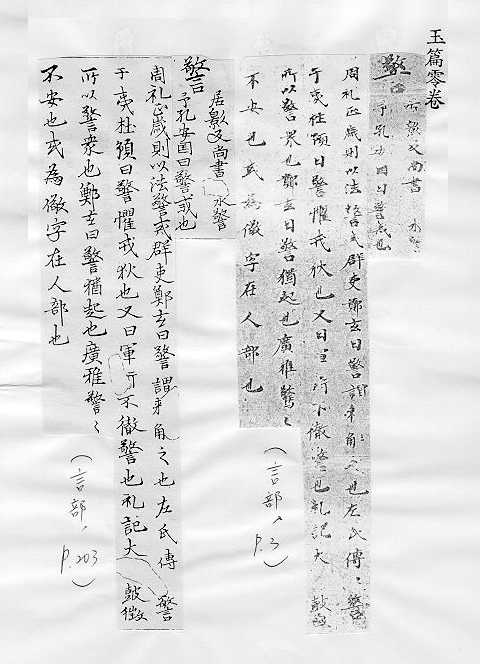 玉篇零卷
警
居影反尚書 永警
予孔安国曰警戒也
周礼正歲則以法警戒群吏鄭玄曰警謂来角之也左氏傳〻警
于夷杜預曰警懼戎狄也又曰軍行不徹警也礼記大 鼓徵
所以警衆也鄭玄曰警猶起也廣雅警〻
不安也或為儆字在人部也
(言部, p.3)
警
居影反尚書 永警
予孔安国曰警戒也
周礼正歲則以法警戒群吏鄭玄曰警謂来角之也左氏傳 警
于夷杜預曰警懼戎狄也又曰軍行不徹警也礼記大 鼓徵
所以警衆也鄭玄曰警猶起也廣雅警〻
不安也或為儆字在人部也
(言部, p.203)